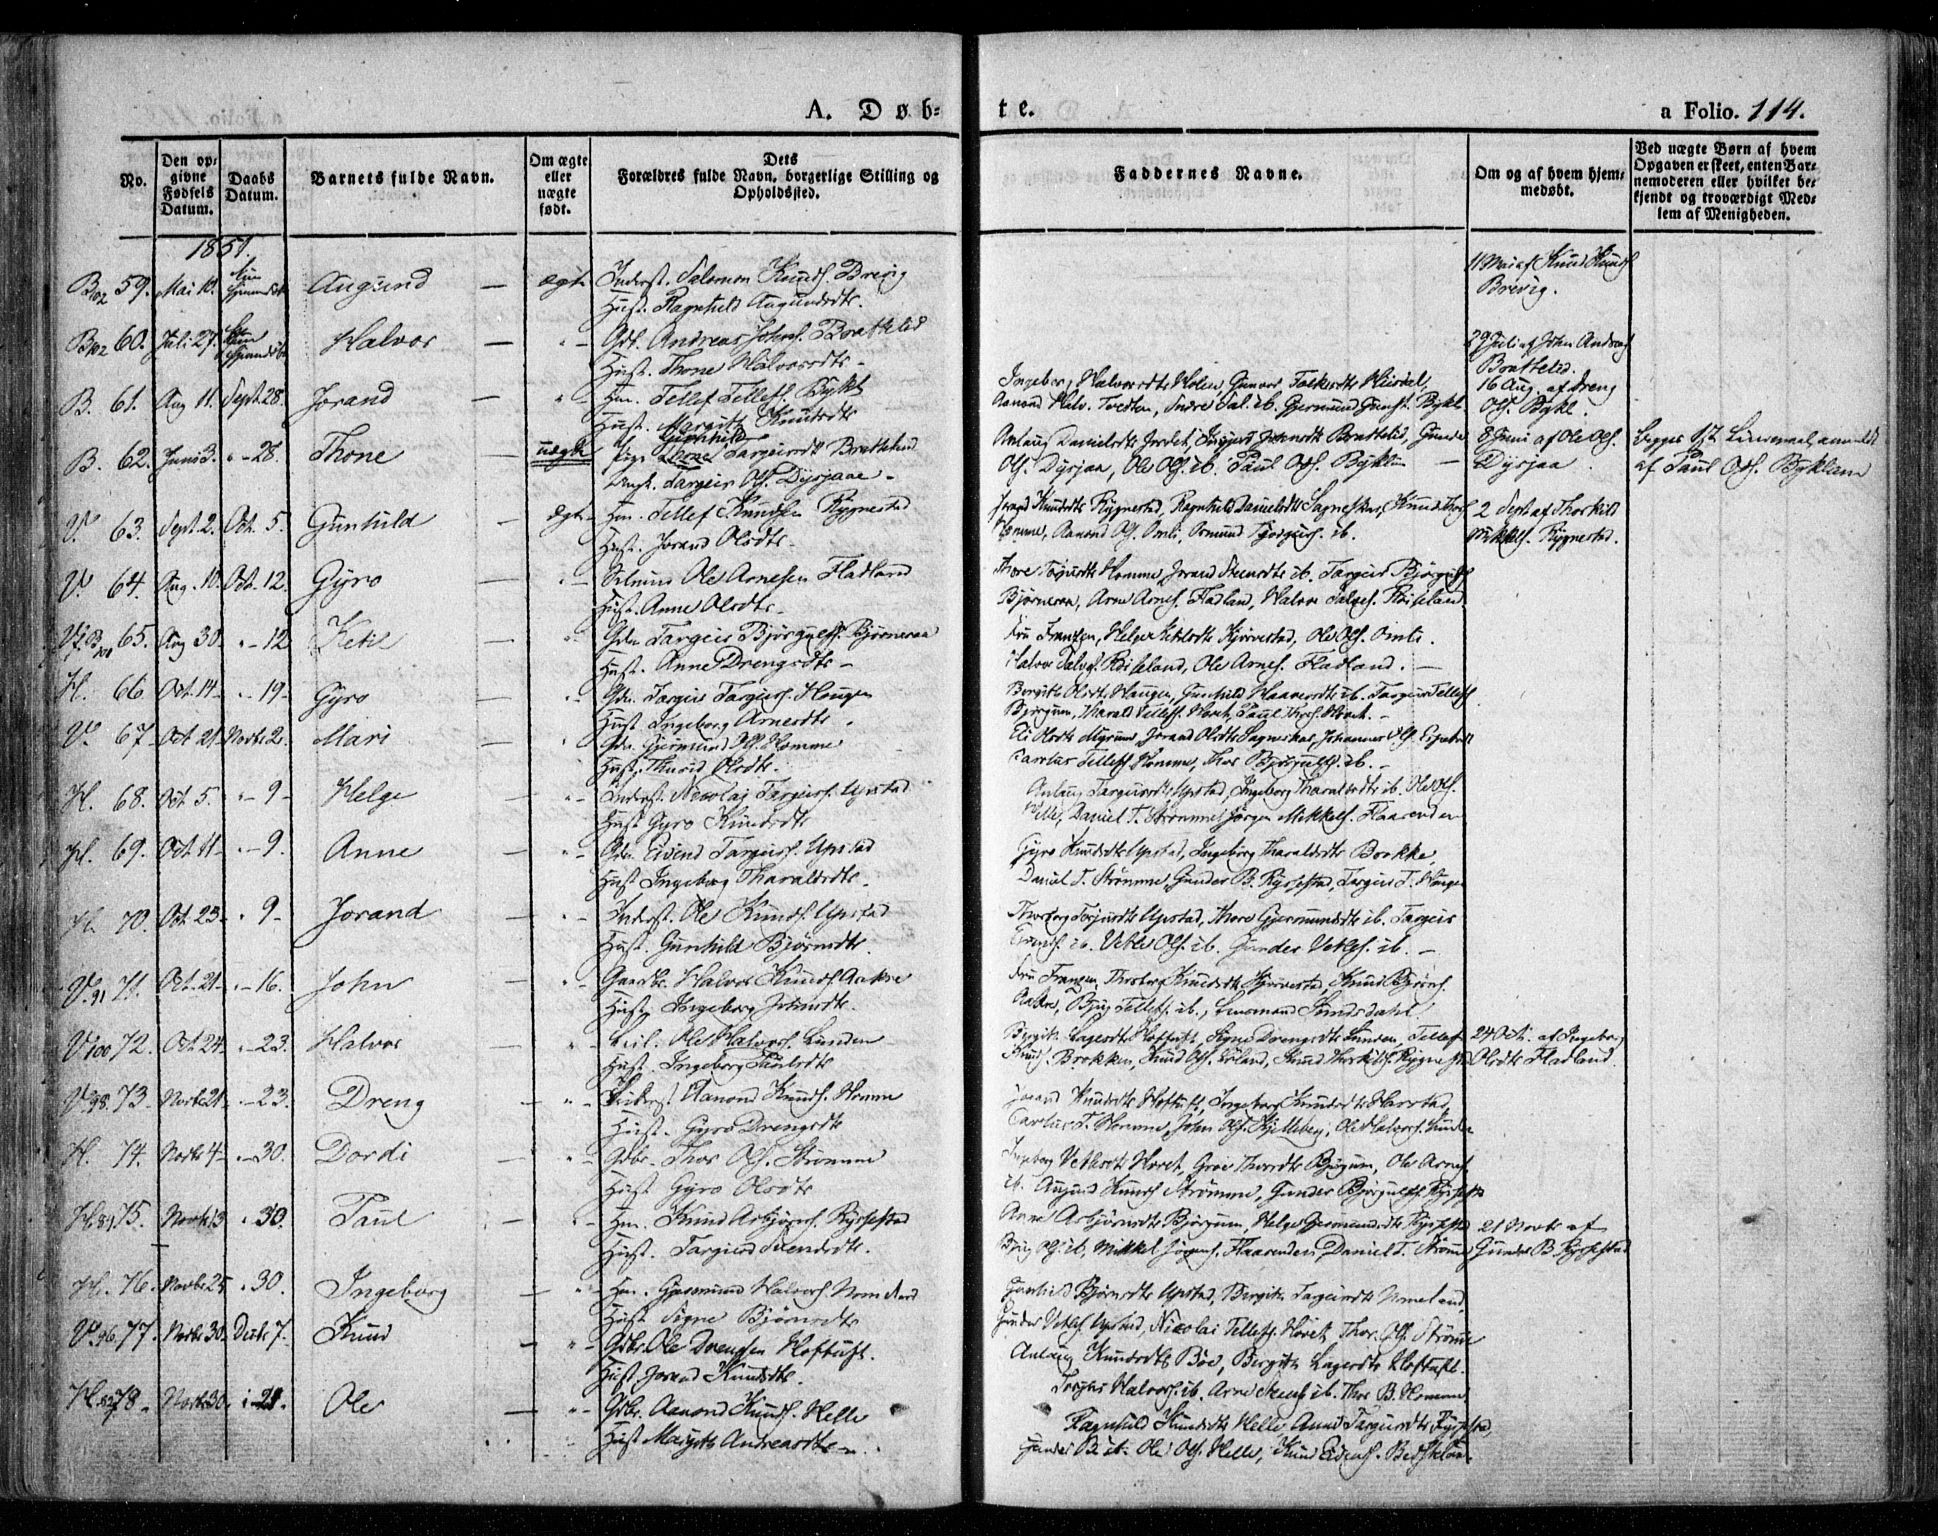 A. Døb-
te.
a Folio. 114.
No.
Den op-
givne
Fødsels
Datum.
Daabs
Datum.
Barnets fulde Navn.
Om ægte
eller
uægte
født.
Dets
Forældres fulde Navn, borgerlige Stilling og
Opholdssted.
Faddernes Navne.
Om og af hvem hjem-
medøbt.
Ved uægte Børn af hvem
Opgaven er skeet, enten Bar-
nemoderen eller hvilket be-
kjendt og troværdigt Med-
lem af Menigheden.
1851.
B102 59. Mai 10. Augund — ægte Inderst. Salomon Knuds. Brevig
Hust. Ragnhild Augundsdtr.
11 Mai af Knud Knuds
Brevig.
B102 60. Juli 27. Halvor — "- Gbr. Andreas Johns. Bratteled
Hust. Thone Halvorsdtr -
29 Juli af John Andreas
Bratteled.
B. 61. Aug 11. Sept. 28. Jorand — " Hm. Tellef Tellefs. Bykle
Hust. Margith Knudsdtr
Ingeborg Halvorsdtr Holen, Gunvor Folkesdtr
Aanond Halv. Tvedten, Gjermund Bykle
16 Aug. af Dreng
Ols. Bykle.
B. 62. Juni 3. "- 28. Thone uægte Pige Gunhild Targeirsdtr Bratteland
Ungk. Targeir Ols. Dysjaae.
Anlaug Danielsdtr Jordet, Bratteled, Gunder
Ols. Dysjaa, Ole Ols. ib. Paul Ols. Byklum —
8 Juni af Ole Ols.
Dysjaa.
Begges 1st Leiermaal anmeldt
af Paul Ols. Byklum
V. 63. Sept. 2. Oct. 5. Gunhild — Ægte Hm. Tellef Knudsen Rygnestad
Hust. Jorand Olsdtr.
Jorand Knudsdtr Rygnestad, Ragnhild Danielsdtr Sagneskar, Knud Thors
Homme, Aanond Ols. Omli, Osmund ib.
2 Sept af Thorkild
Mikkels. Rygnestad.
V. 64. Aug. 10. Oct. 12. Gyro — "- Ole Arnesen Fladland
Hust. Anne Olsdtr.
Thore Homme, Jorand ib. Targeir Bjørgulfs
Bjørneraa, Arne Arnes. Fladland, Halvor Salves. Røiseland
V. 65. Aug 30. "- 12 Ketil — "- Gbr. Targeir Bjørgulfs. Bjørneraa
Hust. Anne Drengsdtr -
Fru Franzen, Helge Ketilsdtr Kjørvestad, Ole Ols. Omli.
Halvor Salves. Røiseland, Ole Arnes. Fladland. —
H. 66. Oct. 14 - "- 19 - Gyro — "- Gbr. Targeir Targeirs. Haugen
Hust. Ingeborg Arnesdtr.
Birgith Olsdtr Haugen, Gunhild ib. Targeir Tellefs
Bjørgum, Tharald Tellefs. Hovet, Paul Thors. Hovet. -
V. 67 Oct 21. Novbr 2. Mari — "- Gbr. Gjermund Ols. Homme
Hust. Thurid Olsdtr.
Eli Olsdtr Myrum, Jorand Olsdtr Sagneskar, Johannes Ols.
Carolus Tellefs. Homme, Thor Bjørgulfs. ib. -
H. 68. Oct. 5. "- 9 - Helge — "- Inderst. Nicolaj Targeirs. Upstad
Hust. Gyro Knudsdtr
Anlaug Targeirsdtr Upstad, Ingeborg Tharaldsdtr ib. Ole Ols.
Helle, Daniel T. Strømme, Jørgen Mikkels. Flaarenden
H. 69. Oct 11 - "- 9. Anne — "- Gbr. Eivind Targeirs. Upstad
Hust. Ingeborg Tharaldsdtr.
Gyro Knudsdtr Upstad, Ingeborg Tharaldsdtr Brokke,
Daniel T. Strømme, Gunder B. Rysestad, Targeir T. Haugen
H. 70. Oct. 23 - " 9 - Jorand — "- Inderst. Ole Knuds. Upstad
Hust. Gunhild Bjørnsdtr.
Thorborg Torjusdtr Upstad, Thore Gjermundsdtr ib. Targeir
ib. Vetle Ols. ib. Gunder Vetles. ib. -
V. 91 71. Oct. 21 - "- 16. John — "- Gaardbr. Halvor Knuds. Aakre
Hust. Ingeborg Johnsdtr.
Fru Franzen, Thorborg Knudsdtr Kjørvestad, Knud Bjørns.
Aakre, Bjug Tellefs. ib., Lensmand Sundsdahl.
V. 100 72. Oct. 24 - "- 23. Halvor — "- Leil. Ole Halvors. Lunden
Hust. Ingeborg Paulsdtr.
Birgith Lagesdtr Hoftuft, Signe Drengsdtr Lunden, Tellef
Knuds. Brokken, Knud Ols. Løland, Knud Thorkilds. Rygnestad
24 Oct. af Ingeborg
Olsdtr Fladland.
V. 98. 73. Novbr 21 - "- 23. Dreng — "- Inderst. Aanond Knuds. Homme
Hust. Gyro Drengsdtr
Jorand Knudsdtr Hoftuft, Ingeborg Knudsdtr Harstad,
Carolus T. Homme, John Ols. Kjelleberg, Ole Halvors. Lunden
H. 74. Novbr 4 - "- 30. Dordi — "- Gbr. Thor Ols. Strømme
Hust. Gyro Olsdtr
Ingeborg Vetlesdtr Hovet, Groe Thorsdtr Bjørgum, Ole Arnes.
ib. Augund Knuds Strømme, Gunder Bjørgulfs. Rysestad
H. 89. 75. Novbr 13 " 30. Paul — "- Hm. Knud Asbjørns. Rysestad
Hust. Targjerd Svendsdtr.
Anne Asbjørnsdtr Bjørgum, Helge Gjermundsdtr Rysestad
Bjug Ols. ib, Mikkel Jørgens. Flaarenden, Daniel T. Strømme
21 Novbr af
Gunder B. Rysestad
H. 76. Novbr 25 " 30. Ingeborg — "- Hm. Gjermund Halvors. Nomeland
Hust Signe Bjørnsdtr
Gunhild Bjørnsdtr Upstad, Birgith Targeirsdtr Nomeland,
Gunder Vetles. Upstad, Nicolai Tellefs. Hovet, Thor Ols. Strømme
V. 96. 77. Novbr 30. Decbr 7. Knud — "- Gbr. Ole Drengsen Hoftuft.
Hust. Jorand Knudsdtr.
Anlaug Knudsdtr Bøe, Birgith Lagesdtr Hoftuft.
Torjus Halvors. ib. Arne ib. Thor B. Homme
H. 78 - Novbr 30. "- 21. Ole — "- Gbr. Aanond Knuds. Helle
Hust Margith Andreasdtr -
Ragnhild Knudsdtr Helle, Anne Targeirsdtr Rysestad,
Gunder B. ib. Ole Ols. Helle, Knud